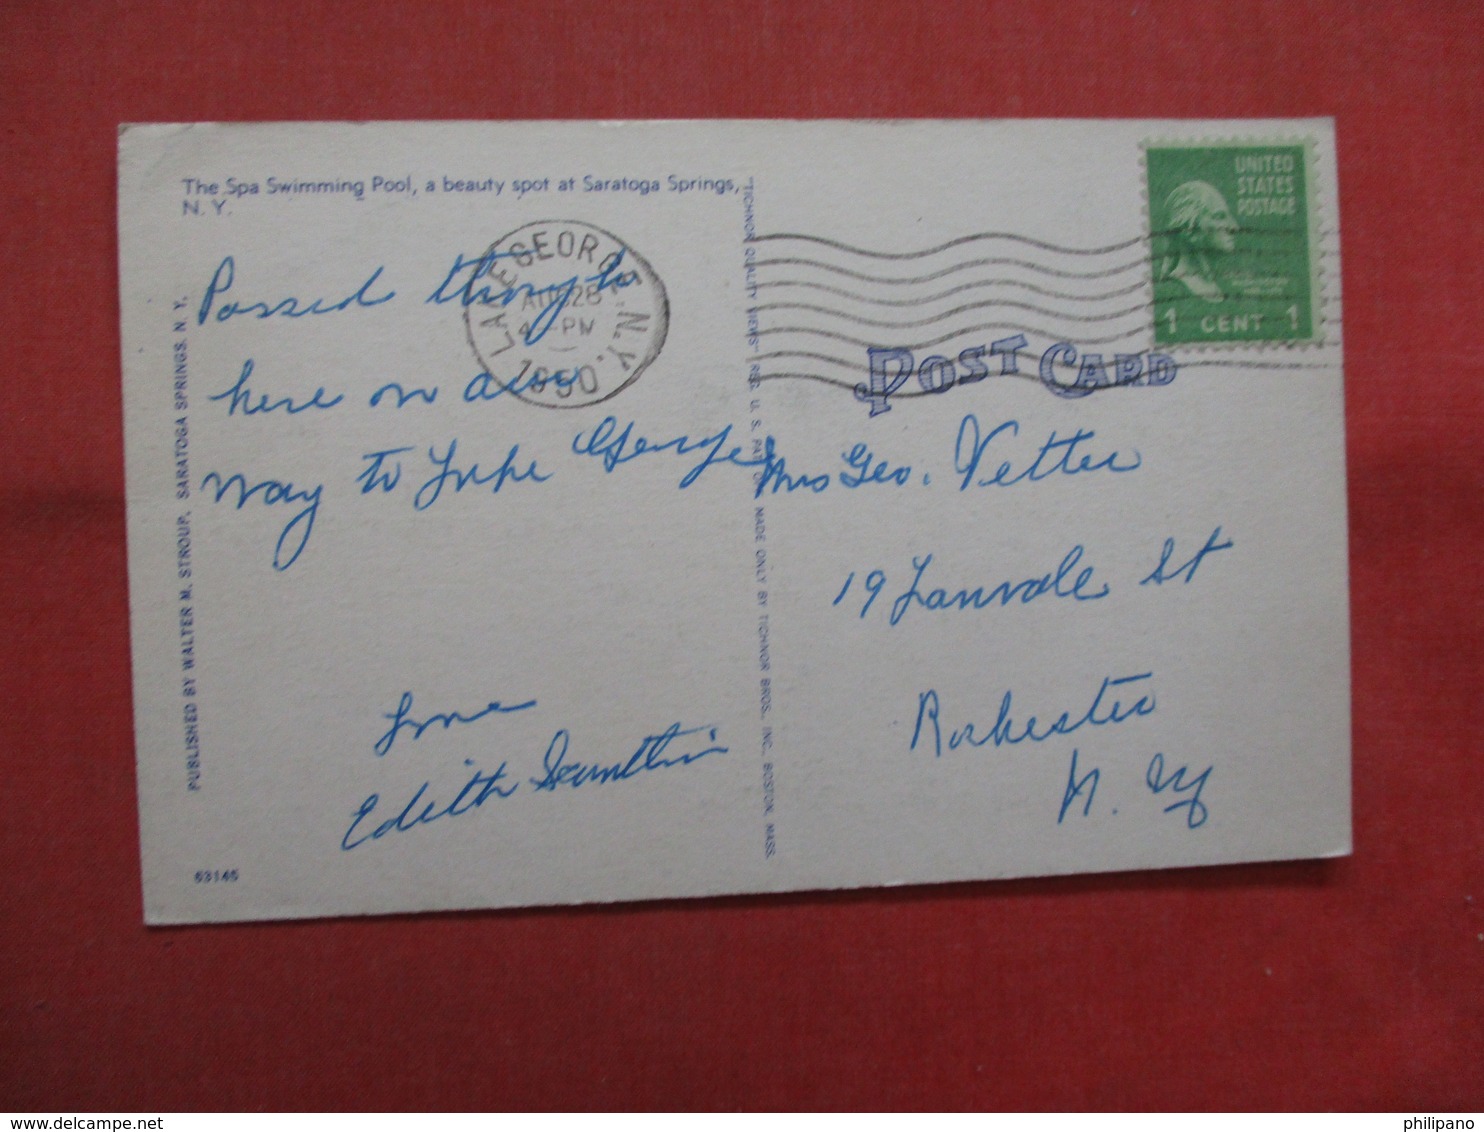 The Spa Swimming Pool, a beauty spot at Saratoga Springs,
N. Y.
Passed through
here on our
way to Lake George
Love
Edith
PUBLISHED BY WALTER M. STROUP, SARATOGA SPRINGS, N. Y.
63145
LAKE GEORGE, N.Y.
AUG 28
4-PM
1950
"TICHNOR QUALITY VIEWS" REG. U. S. PAT. OFF. MADE ONLY BY TICHNOR BROS., INC., BOSTON, MASS.
UNITED
STATES
POSTAGE
1 CENT 1
POST CARD
Mrs Geo. Vetter
19 Lanvale St
Rochester
N. Y
delcampe.net
philipano